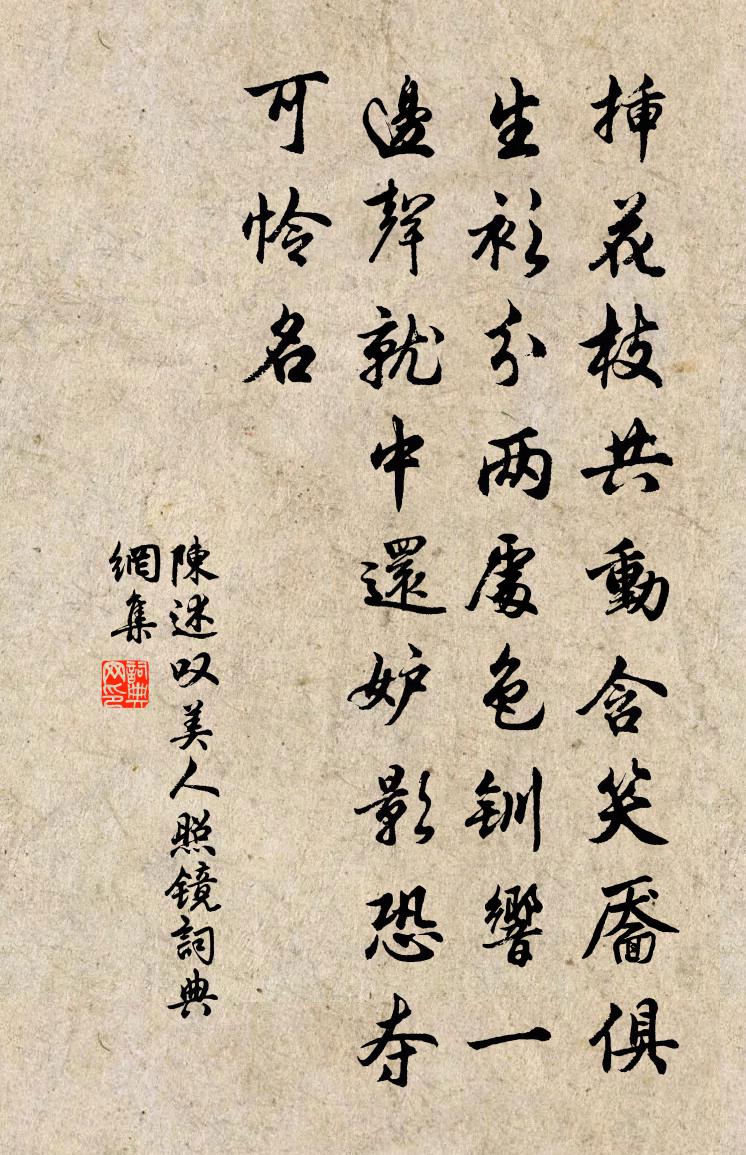 挿花枝共動含笑靨俱
生衫分兩處色釧響一
邊聲就中還妒影恐夺
可怜名
陳述叹美人照鏡詞典
網集
詞典
网印